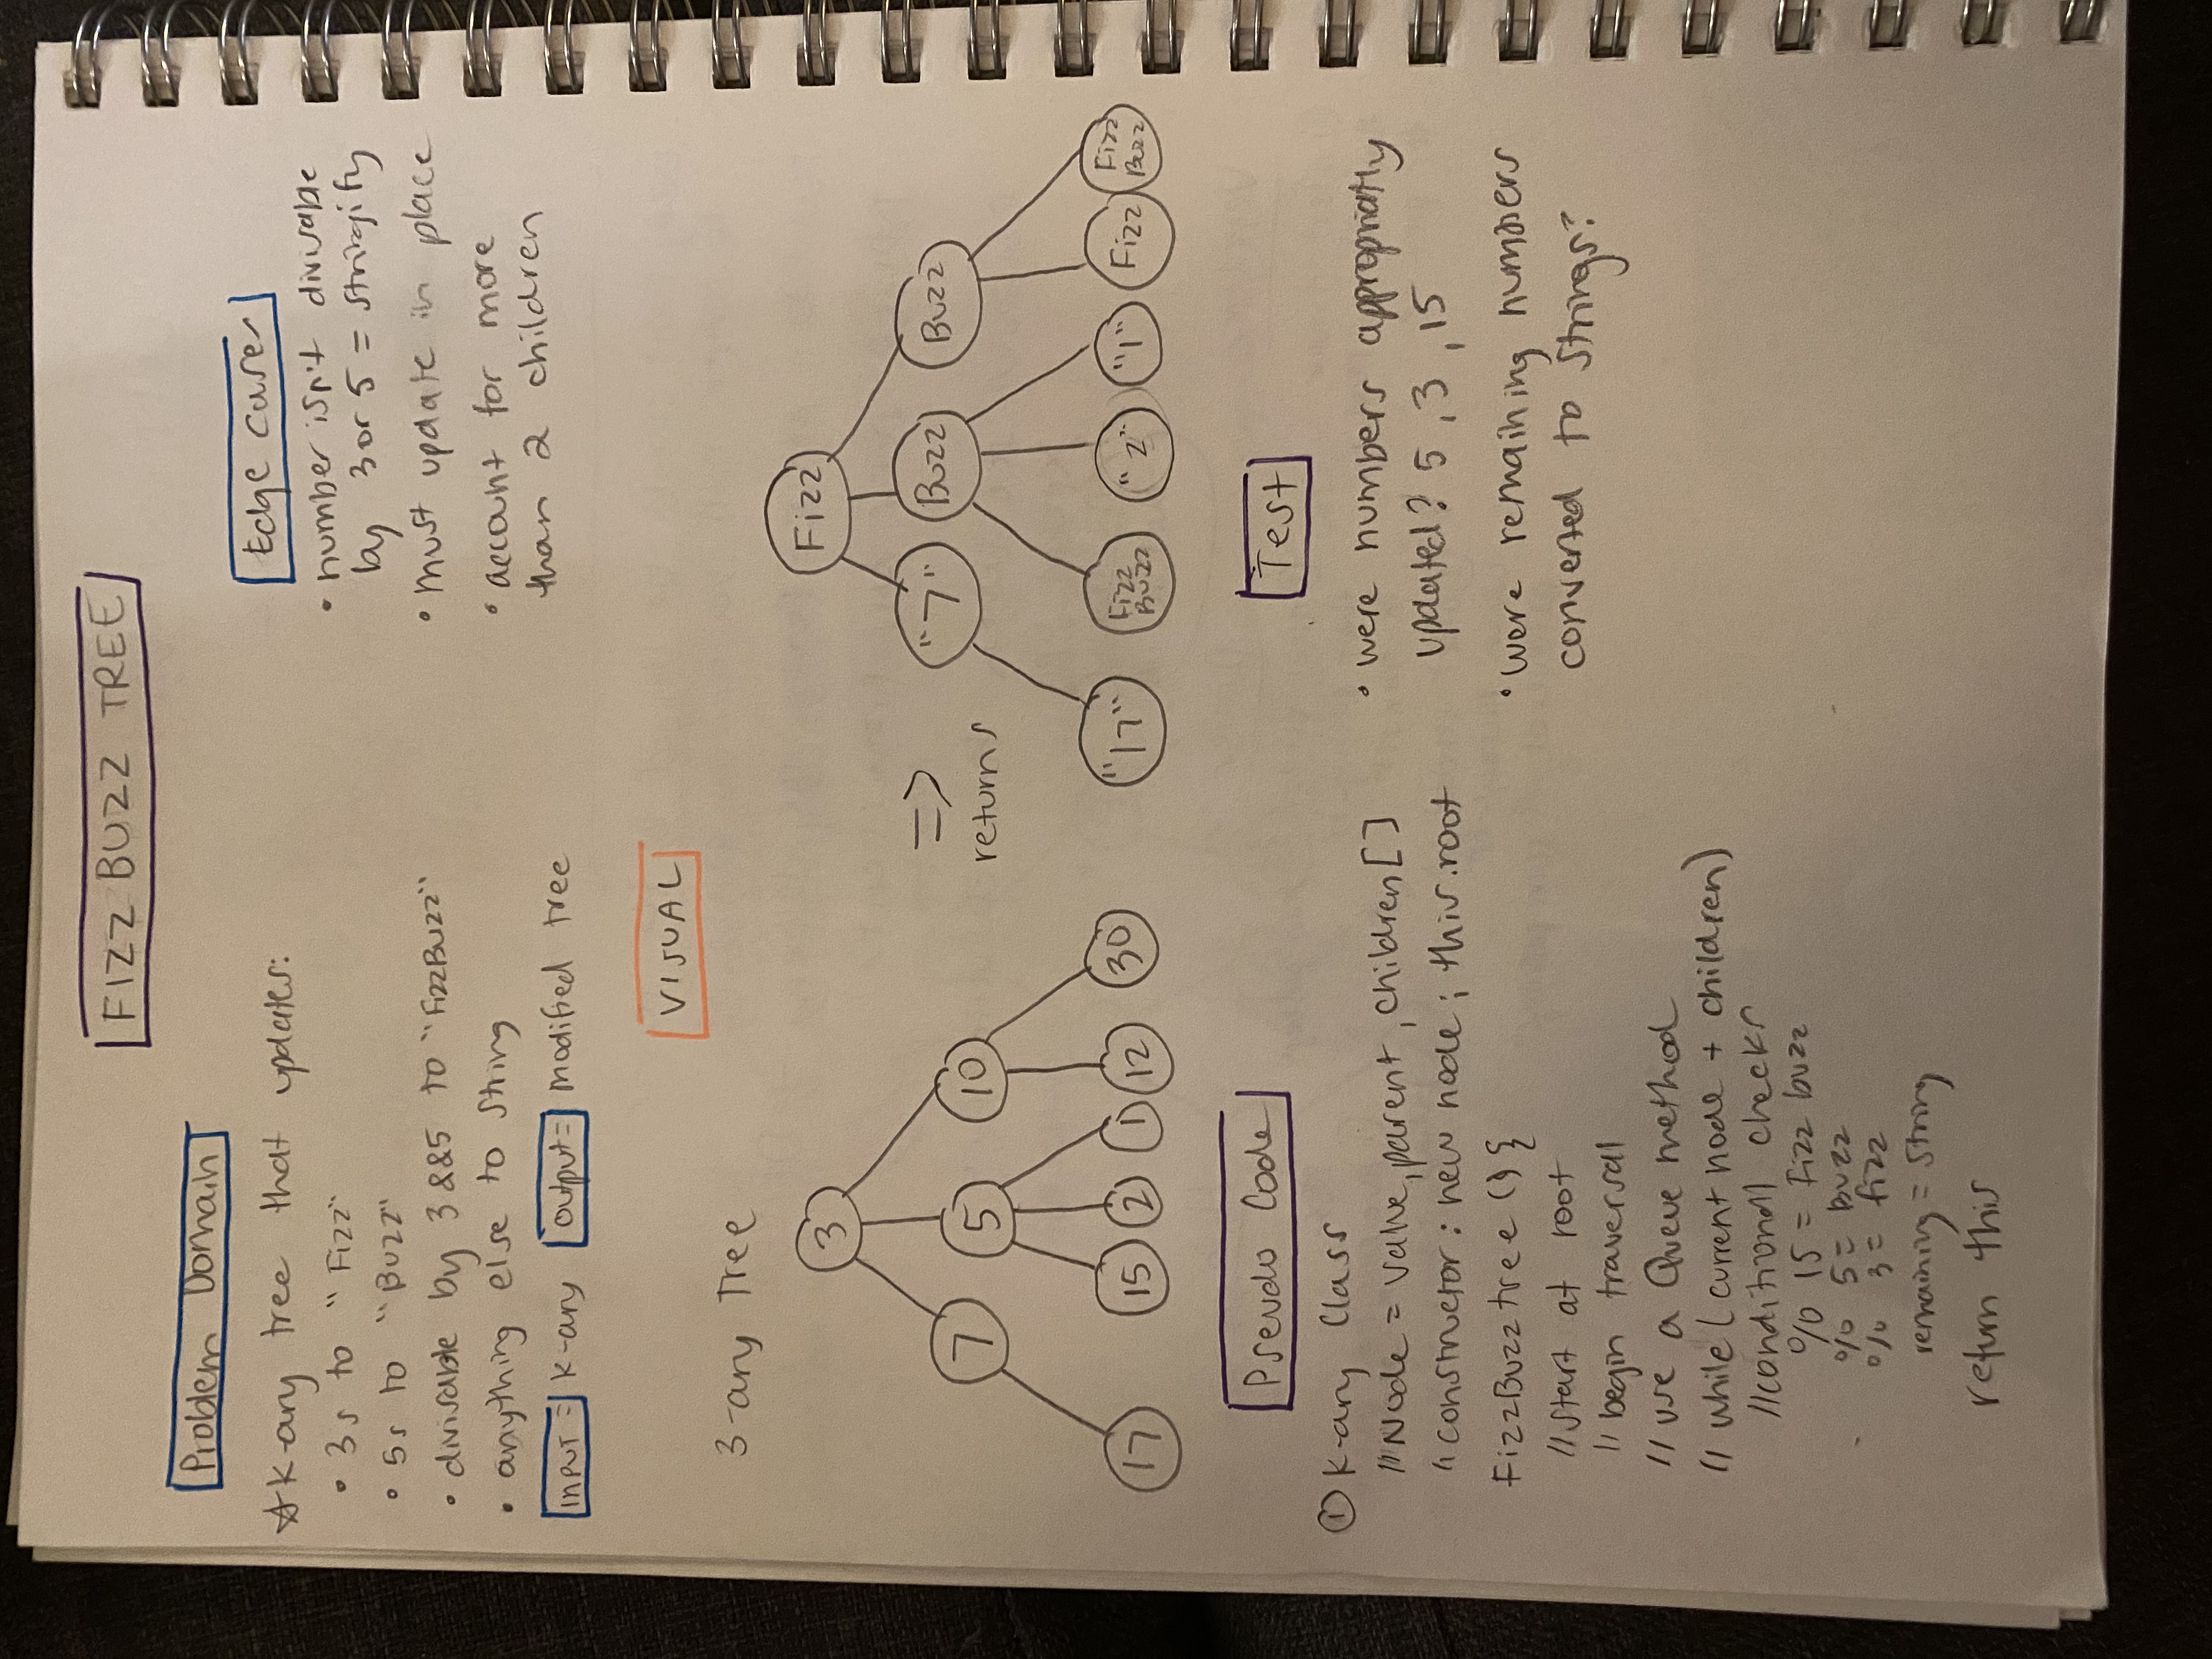 FIZZ BUZZ TREE
Problem Domain
☆ K-ary tree that updates:
• 3s to "Fizz"
• 5s to "Buzz"
• divisable by 3&&5 to "FizzBuzz"
• anything else to string
INPUT = K-ary output= modified tree
Edge Cases
• number isn't divisable
by 3 or 5 = stringify
• must update in place
• account for more
than 2 children
VISUAL
3-ary Tree
3
7 5 10
17 15 2 1 12 30
=>
returns
Fizz
"7" Buzz Buzz
"17" Fizz Buzz "2" "1" Fizz Fizz Buzz
Pseudo Code
① K-ary Class
// Node = value, parent, children[]
" constructor: new node; this.root
FizzBuzztree () {
// start at root
// begin traversal
// use a Queue method
// while (current node + children)
// conditional checks
% 15 = Fizz buzz
% 5 = Buzz
% 3 = fizz
remaining = string
return this
Test
• were numbers appropriatly
updated? 5, 3, 15
• were remaining numbers
converted to strings?